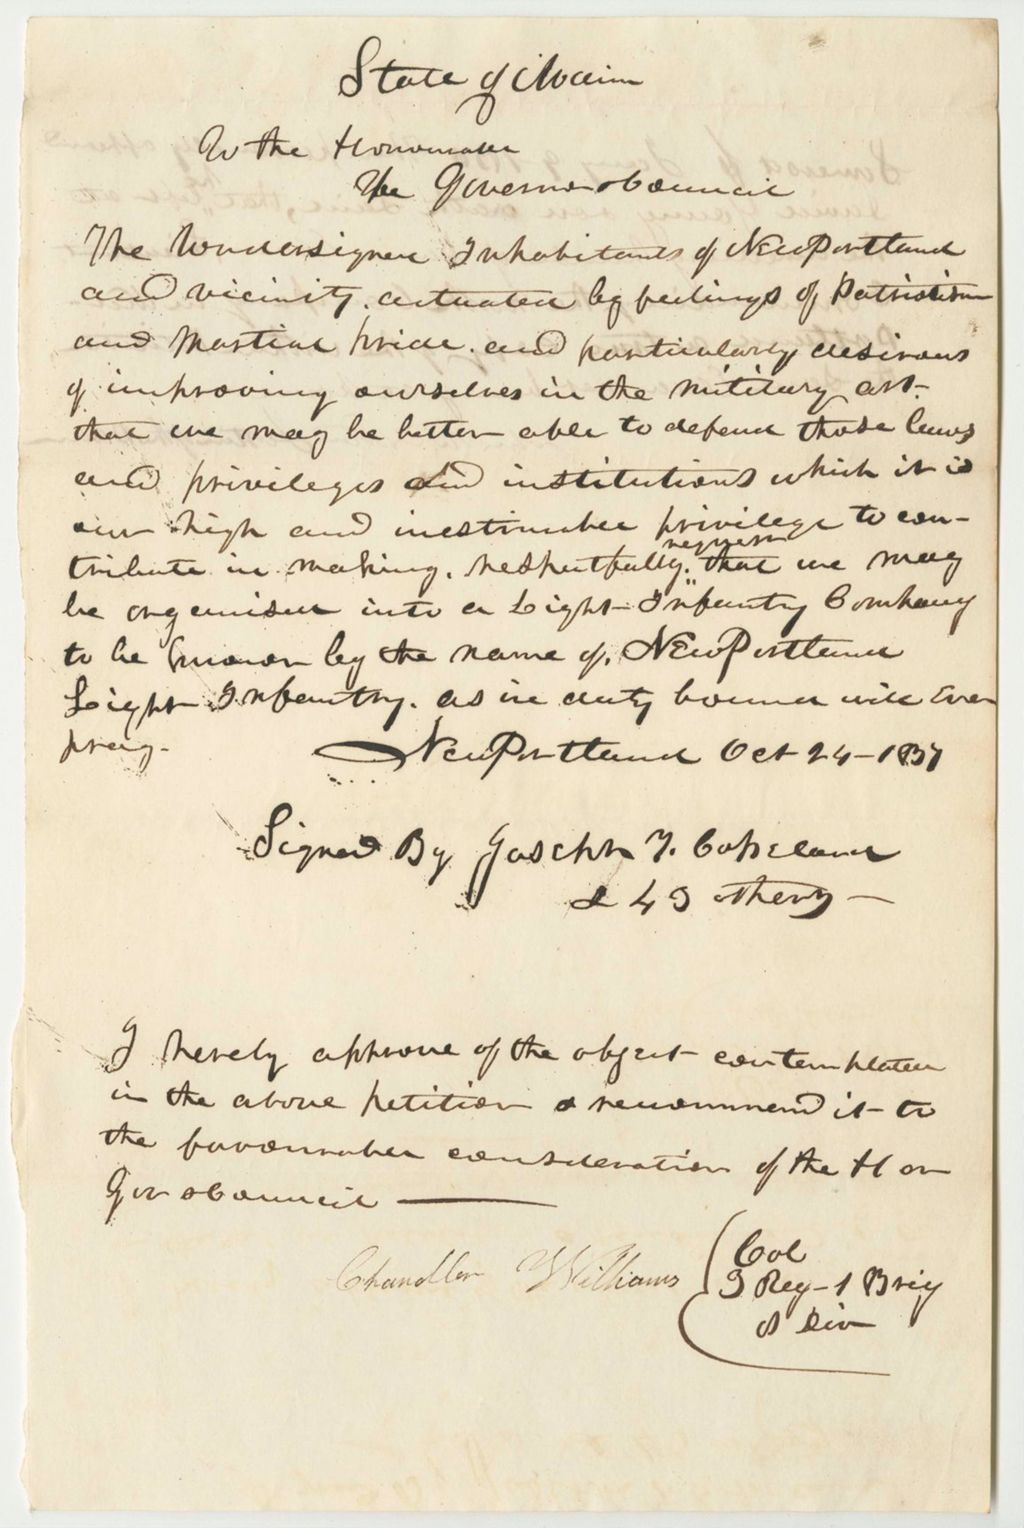 State of Maine
To the Honourable
The Governor & Council
The Undersigned Inhabitants of New Portland
and vicinity. actuated by feelings of Patriotism
and Martial pride. and particularly desirous
of improving ourselves in the military art.
that we may be better able to defend those laws
and privileges and institutions which it is
our high and inestimable privilege to con-
tribute in making. respectfully request that we may
be organised into a Light Infantry Company
to be known by the name of. New Portland
Light Infantry. as in duty bound will Ever
pray-
New Portland Oct 24-1837
Signed By Joseph T. Copeland
& 43 others
I hereby approve of the object contemplated
in the above petition & recommend it to
the favourable consideration of the Hon
Gov & Council
Chandler Williams
Col
3 Reg-1 Brig
8 Div